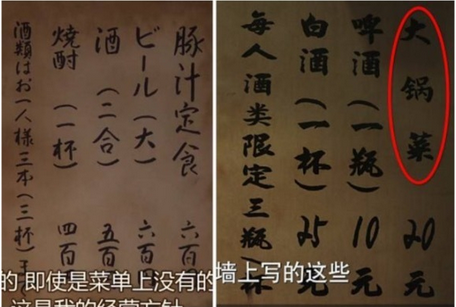 豚汁定食 六百
ビール(大) 六百
酒(二合) 五百
焼酎(一杯) 四百
酒類はお一人様三本(三杯)ま
的 即使是菜单上没有的
这是我的经营方针
大锅菜 20元
啤酒(一瓶) 10元
白酒(一杯) 25元
每人酒类限定三瓶(杯
墙上写的这些